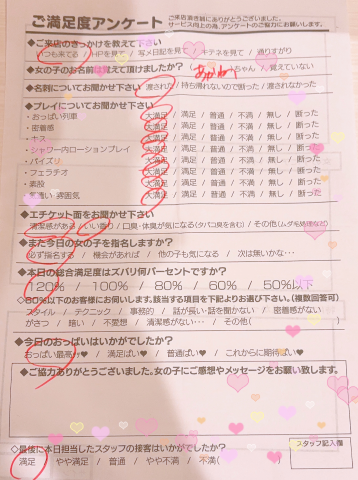 ご満足度アンケート
ご来店頂き誠にありがとうございました。
サービス向上の為、アンケートのご協力にお願いします。
◆ご来店のきっかけを教えて下さい
いつも来てる / HPを見て / 写メ日記を見て / キテネを見て / 通りすがり
◆女の子のお名前覚えて頂けましたか?( ちゃん / 覚えていない
◆名刺についてお聞かせ下さい 渡された / 持ち帰れないので断った / 渡されなかった
◆プレイについてお聞かせ下さい
・おっぱい列車 大満足 / 満足 / 普通 / 不満 / 無し / 断った
・密着感 大満足 / 満足 / 普通 / 不満 / 無し / 断った
・キス 大満足 / 満足 / 普通 / 不満 / 無し / 断った
・シャワー内ローションプレイ 大満足 / 満足 / 普通 / 不満 / 無し / 断った
・パイズリ 大満足 / 満足 / 普通 / 不満 / 無し / 断った
・フェラチオ 大満足 / 満足 / 普通 / 不満 / 無し / 断った
・素股 大満足 / 満足 / 普通 / 不満 / 無し / 断った
・気遣い 雰囲気 大満足 / 満足 / 普通 / 不満 / 無し / 断った
◆エチケット面をお聞かせ下さい
清潔感がある / いい香り / 口臭・体臭が気になる(タバコ臭を含む) / その他(ムダ毛処理など)
◆また今日の女の子を指名しますか?
必ず指名する / 機会があれば / 他の子も気になる / 次は無いかな…
◆本日の総合満足度はズバリ何パーセントですか?
120% / 100% / 80% / 60% / 50%以下
◇80%以下のお客様にお伺いします。該当する項目を下記よりお選び下さい。(複数回答可)
スタイル / テクニック / 事務的 / 話が長い・話を聞かない / 密着感がない
がさつ / 暗い / 不愛想 / 清潔感がない… / その他( )
◆今日のおっぱいはいかがでしたか?
おっぱい最高♥ / 満足ぱい♥ / 普通ぱい♥ / これからに期待ぱい♥
◆ご協力ありがとうございました。女の子にご感想やメッセージをお願い致します。
◇最後に本日担当したスタッフの接客はいかがでしたか?
スタッフ記入欄
満足 / やや満足 / 普通 / やや不満 / 不満( )